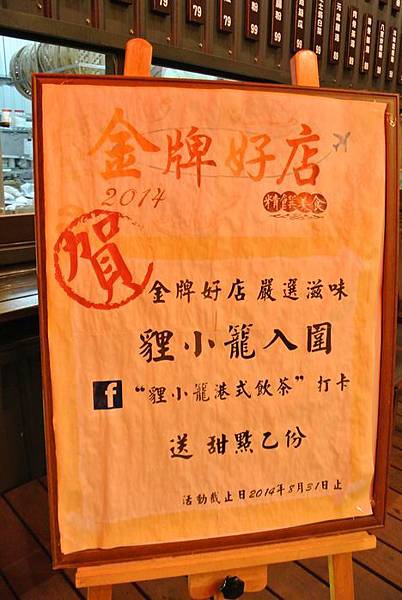 金牌好店
2014
精饌美食
賀
金牌好店 嚴選滋味
貍小籠入圍
f "貍小籠港式飲茶" 打卡
送 甜點乙份
活動截止日2014年8月31日止
79
79
99
99